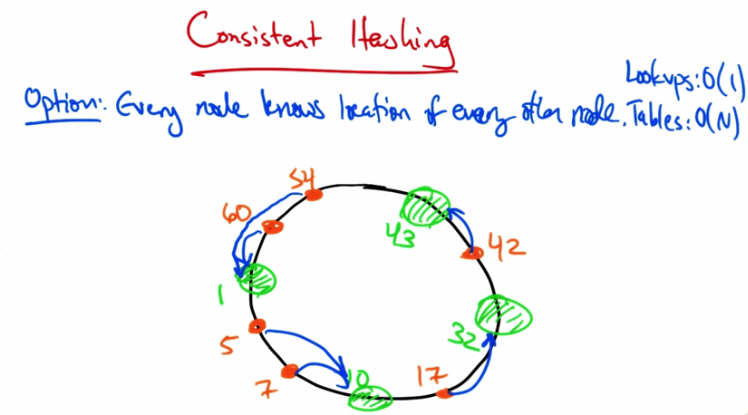 Consistent Hashing
Lookups: O(1)
Option: Every node knows location of every other node. Tables: O(N)
54
60
43
42
1
32
5
7
10
17